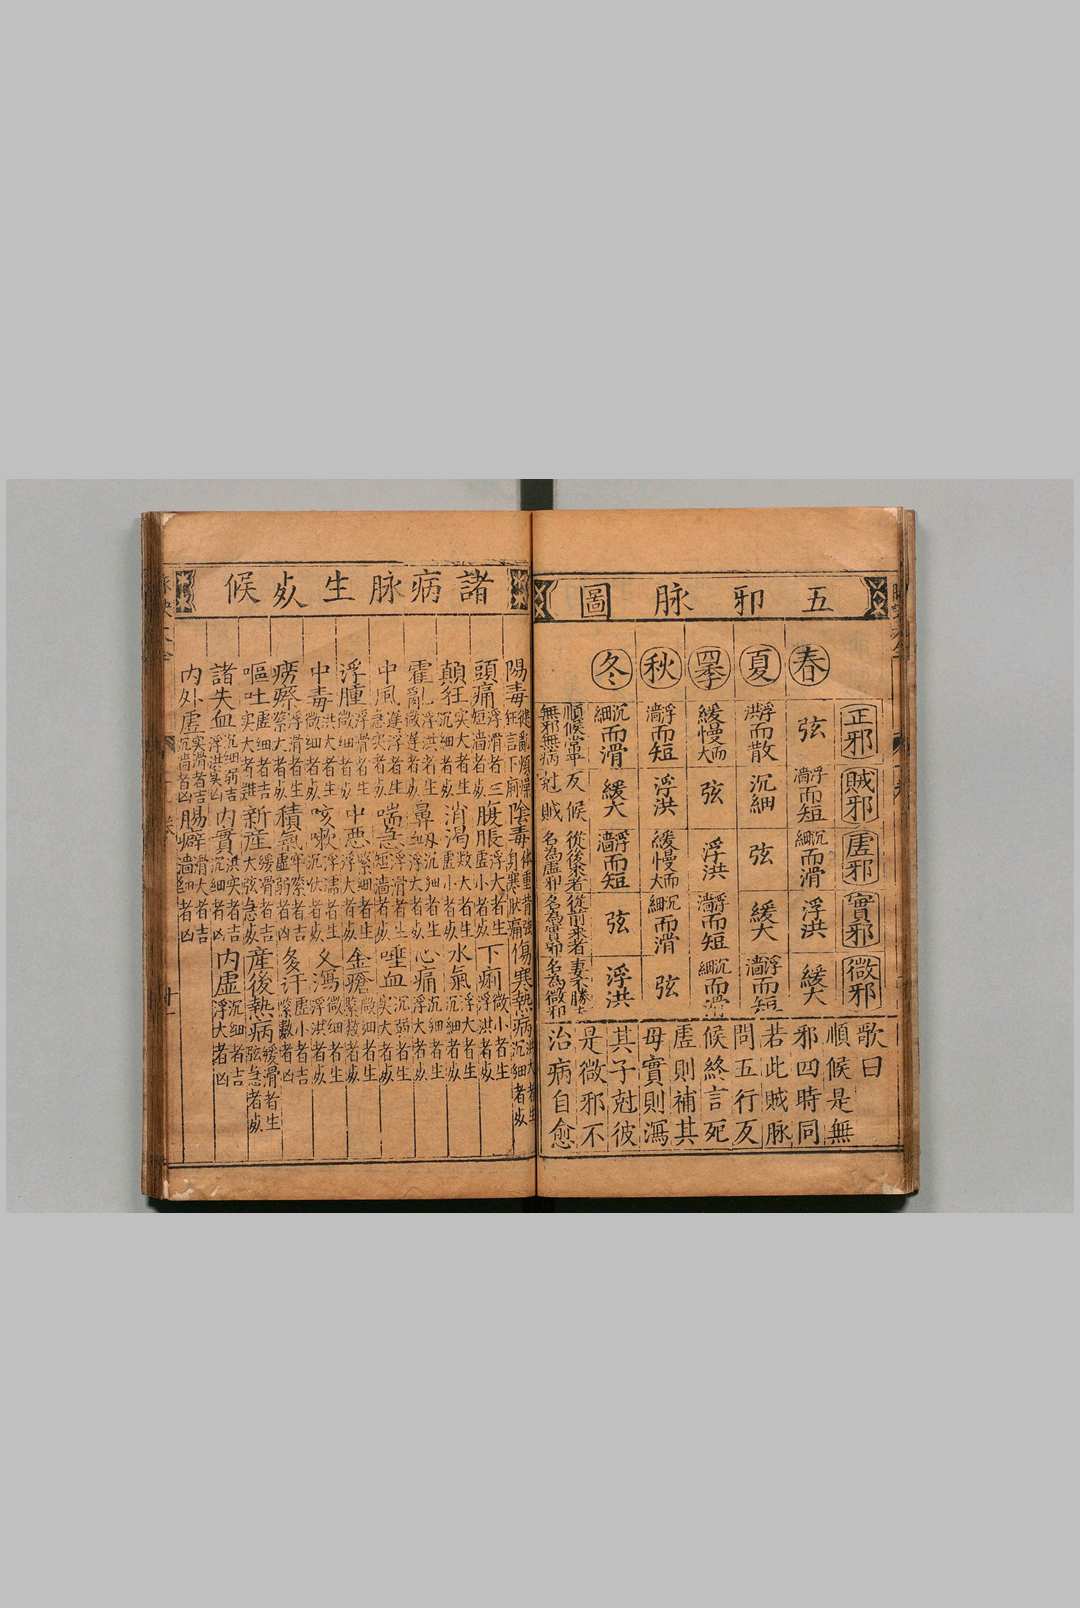 五邪脉圖
春
夏
四季
秋
冬
正邪
賊邪
虛邪
實邪
微邪
弦
浮濇而短
沉細而滑
浮洪
緩大
浮洪而散
沉細
弦
緩大
浮濇而短
緩慢而大
弦
浮洪
浮濇而短
沉細而滑
浮濇而短
浮洪
緩慢而大
沉細而滑
弦
沉細而滑
緩大
浮濇而短
弦
浮洪
順候常平
無邪無病
反候
尅賊
從後來者
名為虛邪
從前來者
名為實邪
妻不勝夫
名為微邪
歌曰
順候是無
邪四時同
若此賊脉
問五行反
候終言死
虛則補其
母實則瀉
其子尅彼
是微邪不
治病自愈
諸病脉生死候
陽毒
陰毒身寒
傷寒熱病洪大者生沉細者死
頭痛浮滑者生短濇者死
腹脹浮大者生虛小者死
下痢微小者生浮洪者死
顛狂实大者生沉細者死
消渴数大者生虛小者死
水氣浮大者生沉細者死
霍亂浮洪者生微遲者死
鼻衂沉細者生浮大者死
心痛沉細者生浮大者死
中風遲浮者生急实者死
喘急浮滑者生短濇者死
唾血沉弱者生实大者死
浮腫浮滑者生微細者死
中悪緊細者生浮大者死
金瘡微細者生緊数者死
中毒洪大者生微細者死
咳嗽浮濡者生沉伏者死
久瀉微細者生浮洪者死
癆瘵浮滑者生緊大者死
積氣牢緊者吉虛弱者凶
多汗虛小者吉緊數者凶
嘔吐虛細者吉实大者難
新産緩滑者吉大弦急死
産後熱病緩滑者生弦急者死
諸失血沉細弱吉浮洪实凶
内實洪实者吉沉細者凶
内虛沉細者吉浮大者凶
内外虛实滑者吉沉濇者凶
腸癖滑大者吉濇細者凶